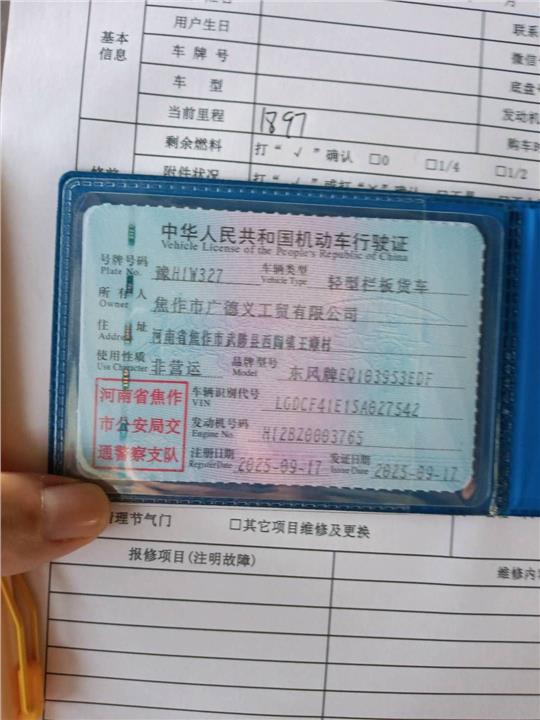 用户生日 联系
基本信息
车牌号 微信
车型 底盘号
当前里程 1897 发动机
剩余燃料 打“√”确认 □0 □1/4 □1/2 购车时
附件状况
中华人民共和国机动车行驶证
Vehicle License of the People's Republic of China
号牌号码 Plate No. 豫H1W327 车辆类型 Vehicle Type 轻型栏板货车
所有人 Owner 焦作市广德义工贸有限公司
住址 Address 河南省焦作市武陟县西陶镇王顺村
使用性质 Use Character 非营运 品牌型号 Model 东风牌EQ1039S3EDF
河南省焦作市公安局交通警察支队
车辆识别代号 VIN LGDCF41E1SA027542
发动机号码 Engine No. H12BZ0003765
注册日期 Register Date 2025-09-17 发证日期 Issue Date 2025-09-17
清理节气门 □其它项目维修及更换
报修项目(注明故障) 维修内